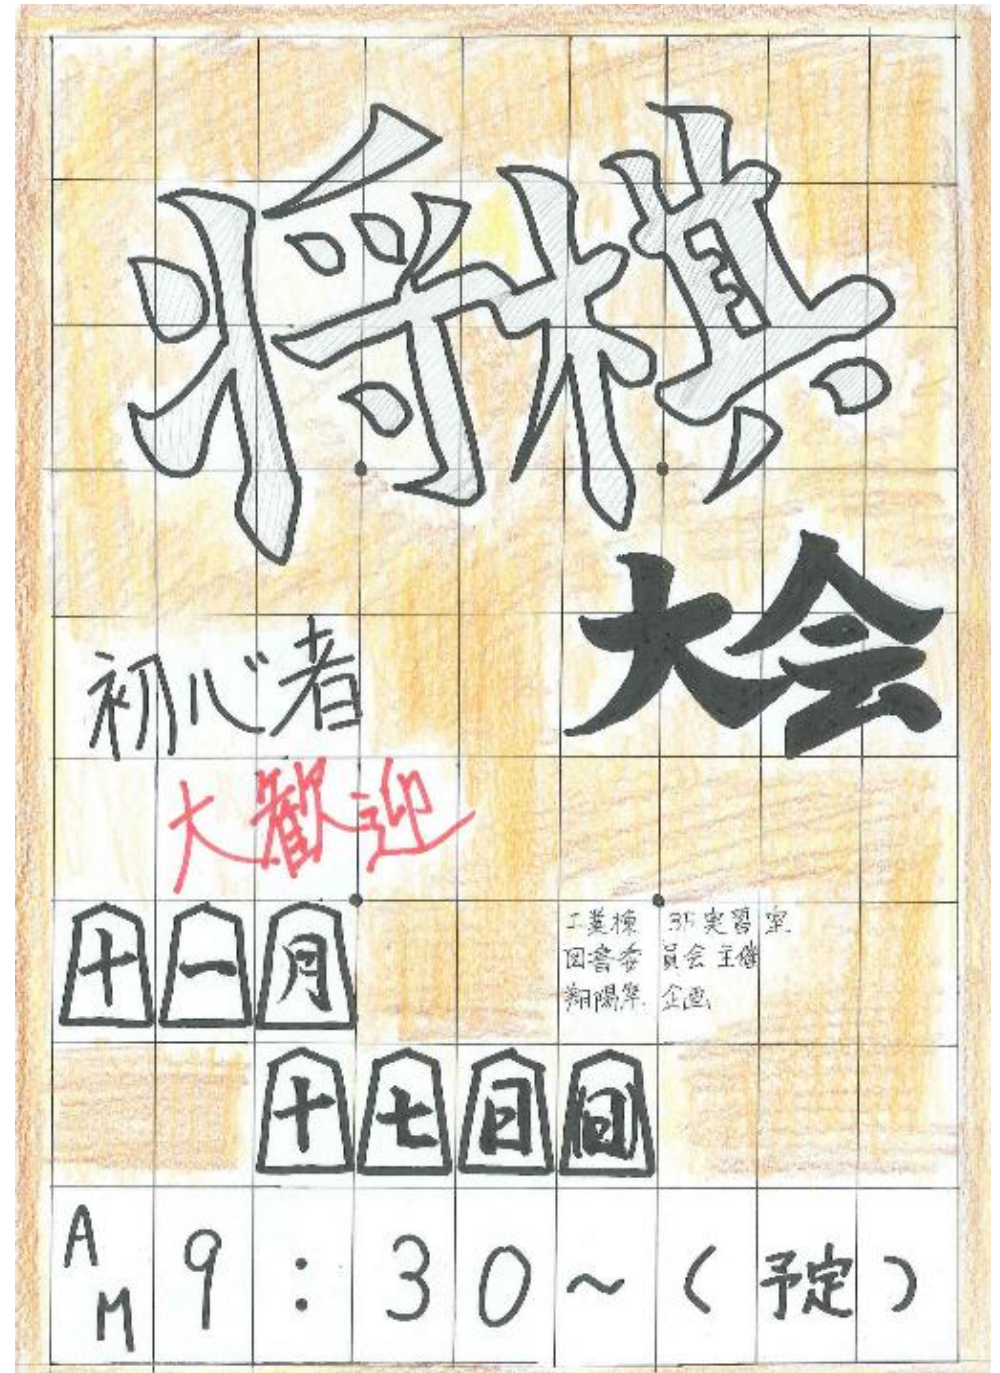 将棋
大会
初心者
大歓迎
工業棟 3F 実習室
図書委員会 主催
翔陽祭 企画
十一月
十七日(日)
AM 9:30~(予定)